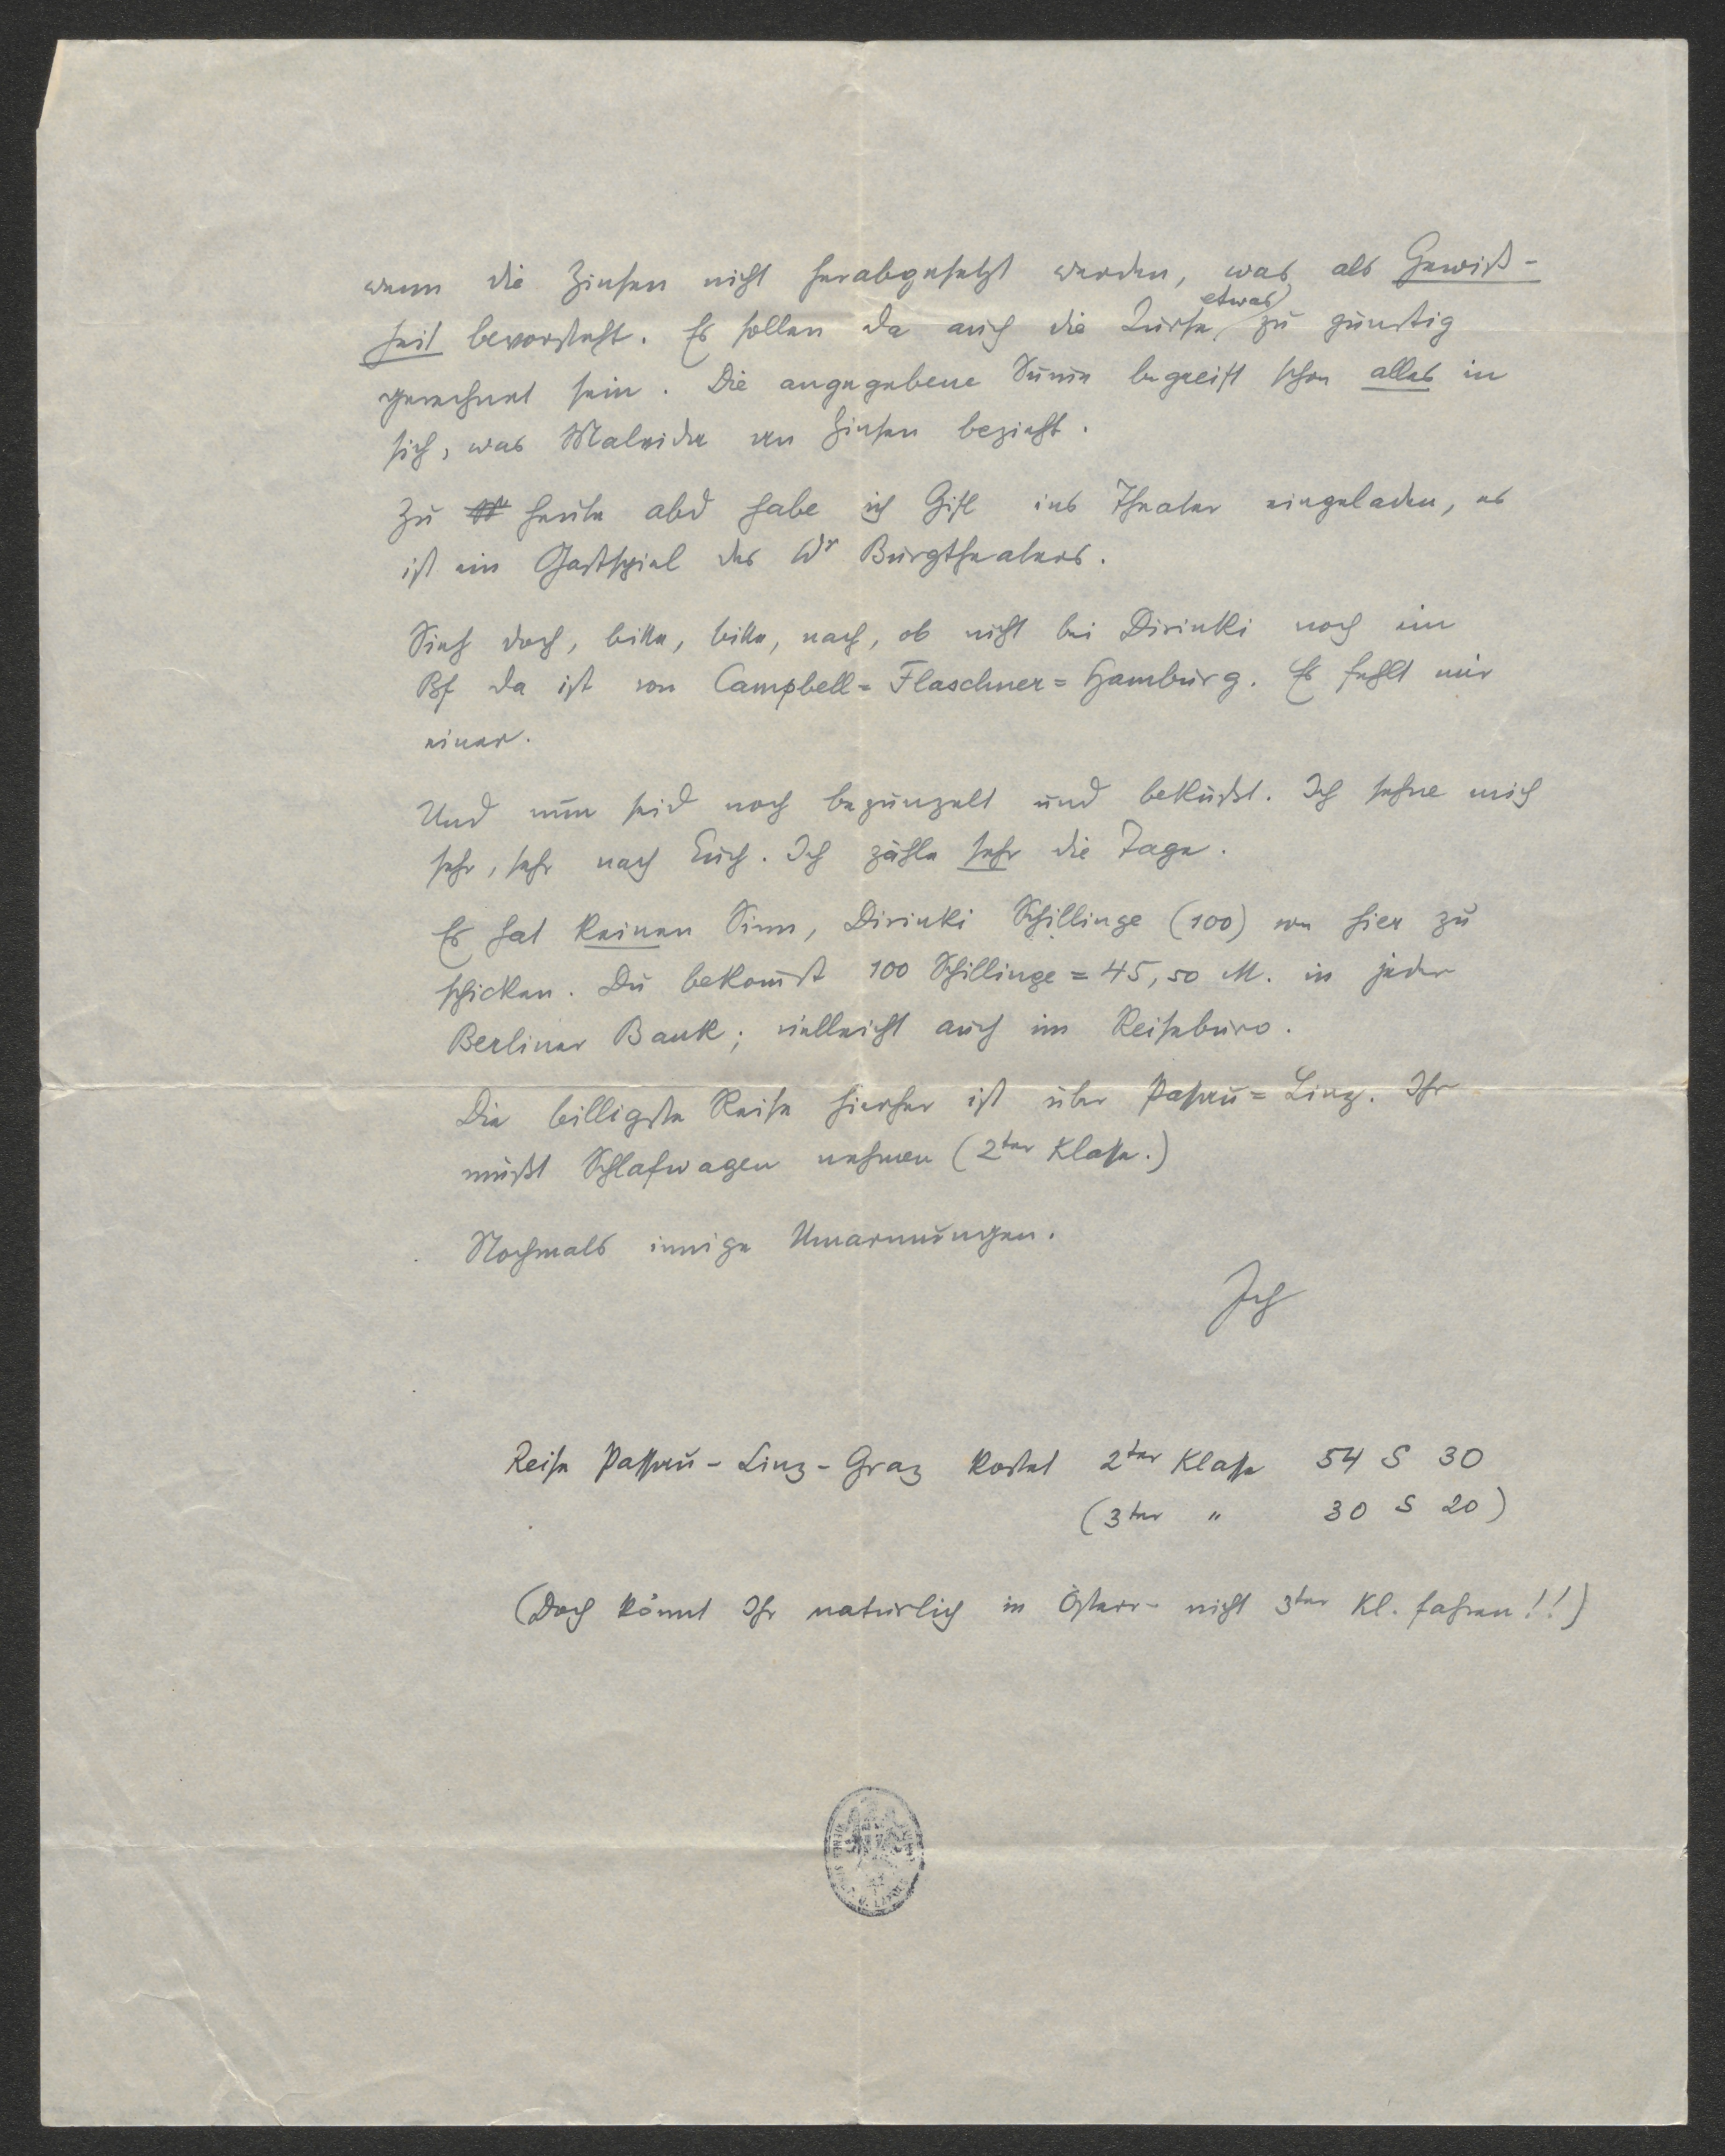 wenn die Zinsen nicht herabgesetzt werden, was als Gewiß-
heit bevorsteht. Es sollen da auch die Kurse etwas zu günstig
gerechnet sein. Die angegebene Sum̄e begreift schon alles in
sich, was Malvida an Zinsen bezieht.
Zu heute abd habe ich Gisl ins Theater eingeladen, es
ist ein Gastspiel des Wr Burgtheaters.
Sieh doch, bitte, bitte, nach, ob nicht bei Dirinki noch ein
Bf da ist von Campbell=Flaschner=Hamburg. Es fehlt mir
einer.
Und nun seid noch bezunzelt und beküßt. Ich sehne mich
sehr, sehr nach Euch. Ich zähle sehr die Tage.
Es hat keinen Sinn, Dirinki Schillinge (100) von hier zu
schicken. Du bekom̄st 100 Schillinge = 45,50 M. in jeder
Berliner Bank; vielleicht auch im Reisebüro.
Die billigste Reise hierher ist über Passau=Linz. Ihr
müßt Schlafwagen nehmen (2ter Klasse.)
Nochmals innige Umarmungen.
Ich
Reise Passau-Linz-Graz kostet 2ter Klasse 54 S 30
(3ter " 30 S 20)
(Doch könnt Ihr natürlich in Österr- nicht 3ter Kl. fahren!!)